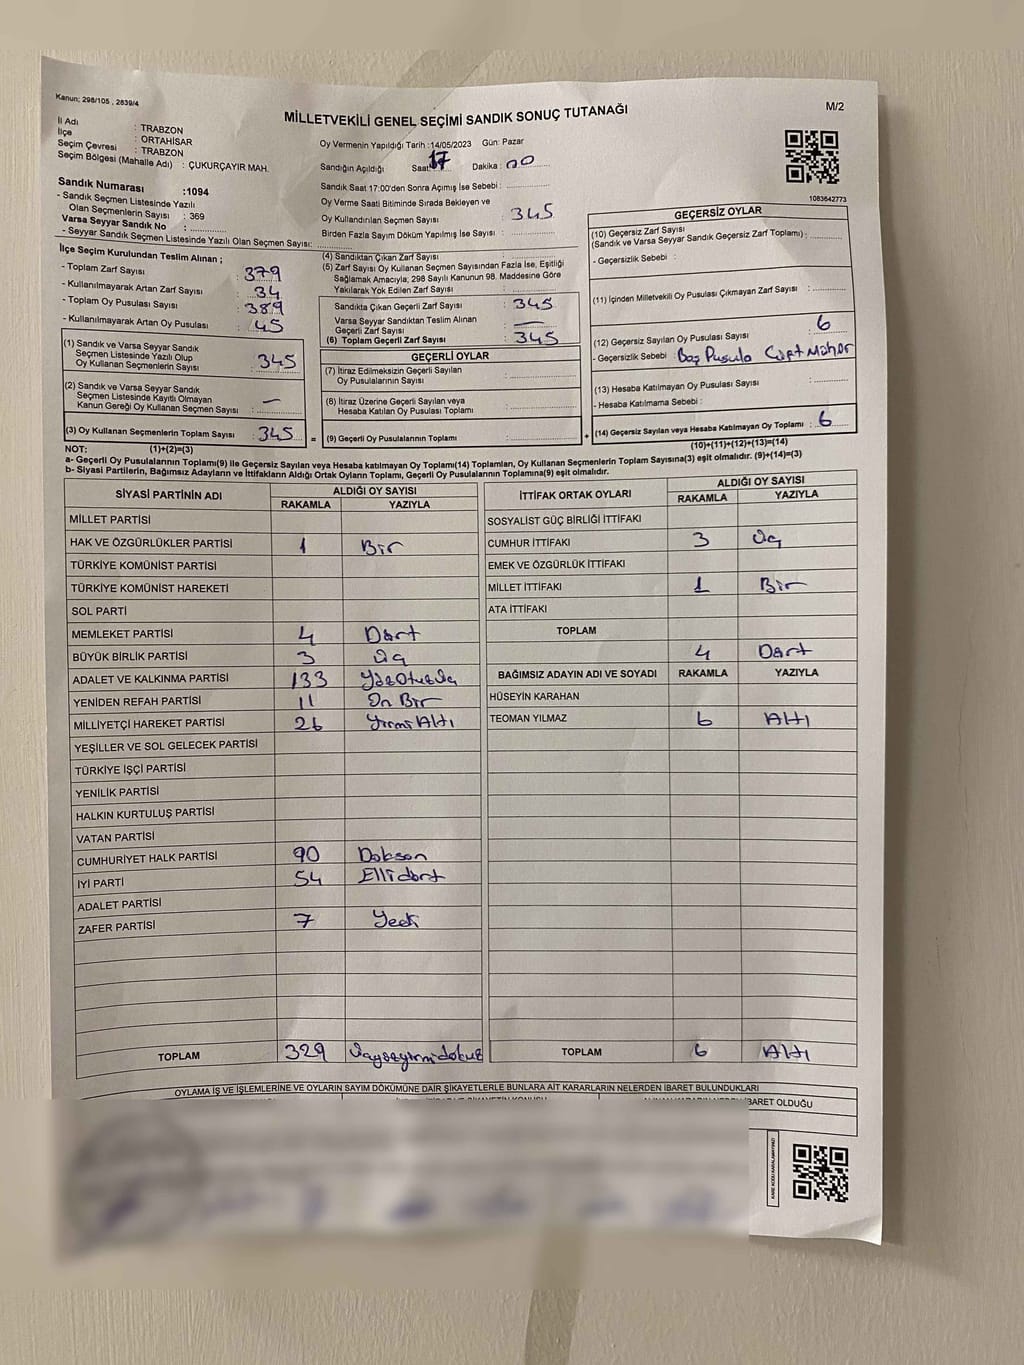 Kanun; 298/105 , 2839/4
MİLLETVEKİLİ GENEL SEÇİMİ SANDIK SONUÇ TUTANAĞI
M/2
İl Adı : TRABZON
İlçe : ORTAHİSAR
Seçim Çevresi : TRABZON
Seçim Bölgesi (Mahalle Adı) : ÇUKURÇAYIR MAH.
Sandık Numarası :1094
- Sandık Seçmen Listesinde Yazılı
Olan Seçmenlerin Sayısı : 369
Varsa Seyyar Sandık No :
- Seyyar Sandık Seçmen Listesinde Yazılı Olan Seçmen Sayısı:
Oy Vermenin Yapıldığı Tarih :14/05/2023 Gün: Pazar
Sandığın Açıldığı Saat 17 Dakika : 00
Sandık Saat 17:00'den Sonra Açımış İse Sebebi :
Oy Verme Saati Bitiminde Sırada Bekleyen ve
Oy Kullandırılan Seçmen Sayısı : 345
Birden Fazla Sayım Döküm Yapılmış İse Sayısı :
1083642773
İlçe Seçim Kurulundan Teslim Alınan ;
- Toplam Zarf Sayısı : 379
- Kullanılmayarak Artan Zarf Sayısı : 34
- Toplam Oy Pusulası Sayısı : 389
- Kullanılmayarak Artan Oy Pusulası : 45
(1) Sandık ve Varsa Seyyar Sandık
Seçmen Listesinde Yazılı Olup
Oy Kullanan Seçmenlerin Sayısı : 345
(2) Sandık ve Varsa Seyyar Sandık
Seçmen Listesinde Kayıtlı Olmayan
Kanun Gereği Oy Kullanan Seçmen Sayısı : —
(3) Oy Kullanan Seçmenlerin Toplam Sayısı : 345 =
(4) Sandıktan Çıkan Zarf Sayısı :
(5) Zarf Sayısı Oy Kullanan Seçmen Sayısından Fazla İse, Eşitliği
Sağlamak Amacıyla, 298 Sayılı Kanunun 98. Maddesine Göre
Yakılarak Yok Edilen Zarf Sayısı :
Sandıkta Çıkan Geçerli Zarf Sayısı : 345
Varsa Seyyar Sandıktan Teslim Alınan
Geçerli Zarf Sayısı : —
(6) Toplam Geçerli Zarf Sayısı : 345
GEÇERLİ OYLAR
(7) İtiraz Edilmeksizin Geçerli Sayılan
Oy Pusulalarının Sayısı :
(8) İtiraz Üzerine Geçerli Sayılan veya
Hesaba Katılan Oy Pusulası Toplamı :
(9) Geçerli Oy Pusulalarının Toplamı : +
GEÇERSİZ OYLAR
(10) Geçersiz Zarf Sayısı
(Sandık ve Varsa Seyyar Sandık Geçersiz Zarf Toplamı) :
- Geçersizlik Sebebi :
(11) İçinden Milletvekili Oy Pusulası Çıkmayan Zarf Sayısı :
(12) Geçersiz Sayılan Oy Pusulası Sayısı : 6
- Geçersizlik Sebebi : Boş Pusula Çift Mühür
(13) Hesaba Katılmayan Oy Pusulası Sayısı :
- Hesaba Katılmama Sebebi :
(14) Geçersiz Sayılan veya Hesaba Katılmayan Oy Toplamı : 6
NOT: (1)+(2)=(3)
(10)+(11)+(12)+(13)=(14)
a- Geçerli Oy Pusulalarının Toplamı(9) ile Geçersiz Sayılan veya Hesaba katılmayan Oy Toplamı(14) Toplamları, Oy Kullanan Seçmenlerin Toplam Sayısına(3) eşit olmalıdır. (9)+(14)=(3)
b- Siyasi Partilerin, Bağımsız Adayların ve İttifakların Aldığı Ortak Oyların Toplamı, Geçerli Oy Pusulalarının Toplamına(9) eşit olmalıdır.
SİYASİ PARTİNİN ADI ALDIĞI OY SAYISI
RAKAMLA YAZIYLA
MİLLET PARTİSİ
HAK VE ÖZGÜRLÜKLER PARTİSİ 1 Bir
TÜRKİYE KOMÜNİST PARTİSİ
TÜRKİYE KOMÜNİST HAREKETİ
SOL PARTİ
MEMLEKET PARTİSİ 4 Dört
BÜYÜK BİRLİK PARTİSİ 3 Üç
ADALET VE KALKINMA PARTİSİ 133 YüzOtuzÜç
YENİDEN REFAH PARTİSİ 11 On Bir
MİLLİYETÇİ HAREKET PARTİSİ 26 Yirmi Altı
YEŞİLLER VE SOL GELECEK PARTİSİ
TÜRKİYE İŞÇİ PARTİSİ
YENİLİK PARTİSİ
HALKIN KURTULUŞ PARTİSİ
VATAN PARTİSİ
CUMHURİYET HALK PARTİSİ 90 Doksan
İYİ PARTİ 54 Ellidört
ADALET PARTİSİ
ZAFER PARTİSİ 7 Yedi
TOPLAM 329 Üçyüzyirmidokuz
İTTİFAK ORTAK OYLARI ALDIĞI OY SAYISI
RAKAMLA YAZIYLA
SOSYALİST GÜÇ BİRLİĞİ İTTİFAKI
CUMHUR İTTİFAKI 3 Üç
EMEK VE ÖZGÜRLÜK İTTİFAKI
MİLLET İTTİFAKI 1 Bir
ATA İTTİFAKI
TOPLAM 4 Dört
BAĞIMSIZ ADAYIN ADI VE SOYADI RAKAMLA YAZIYLA
HÜSEYİN KARAHAN
TEOMAN YILMAZ 6 Altı
TOPLAM 6 Altı
OYLAMA İŞ VE İŞLEMLERİNE VE OYLARIN SAYIM DÖKÜMÜNE DAİR ŞİKAYETLERLE BUNLARA AİT KARARLARIN NELERDEN İBARET BULUNDUKLARI
İBARET OLDUĞU